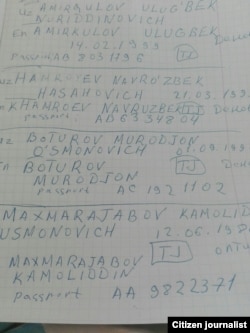 UZ AMIRQULOV ULUG'BEK
NURIDDINOVICH
En AMIRKULOV ULUGBEK
14.02.1999
passport AB 8031796 TJ
UZ HAMROEV NAVRO'ZBEK
HASANOVICH 21.03.199
En KHAMROEV NAVRUZBEK TJ
AD6334804
uz BOTUROV MURODJON
O'SMONOVICH 01.09.199
En BOTUROV TJ
MURODJON
passport AC 1921102
MAXMARAJABOV KAMOLID
USMONOVICH 12.06.19
MAXMARAJABOV TJ
KAMOLIDDIN
passport AA 9822371
Citizen journalist